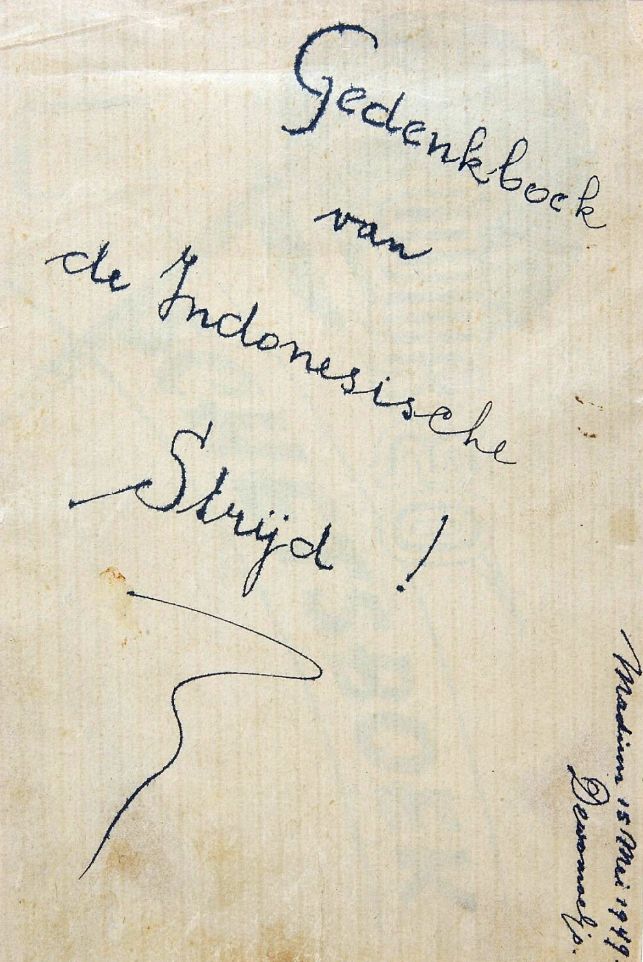 Gedenkboek
van
de Indonesische
Strijd !
Madiun 15 Mei 1949.